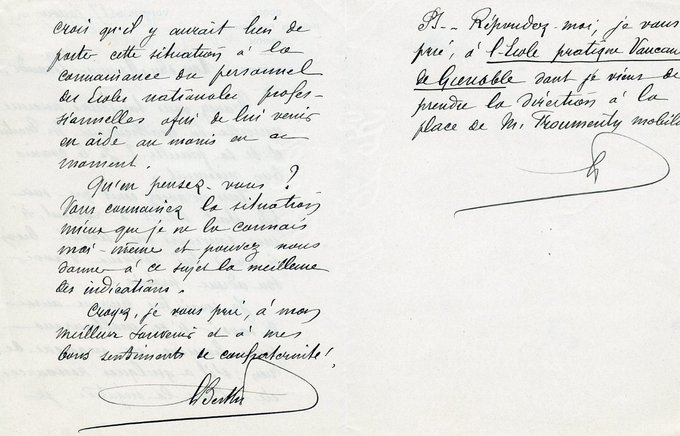 crois qu'il y aurait lieu de
porter cette situation à la
connaissance du personnel
des Ecoles nationales profes-
sionnelles afin de lui venir
en aide au moins en ce
moment.
Qu'en pensez-vous ?
Vous connaissez la situation
mieux que je ne la connais
moi-même et pouvez nous
donner à ce sujet la meilleure
des indications.
Croyez, je vous prie, à mon
meilleur souvenir et à mes
bons sentiments de confraternité !
PS -- Répondez-moi, je vous
prié, à l'Ecole pratique Vaucan
de Grenoble dont je viens de
prendre la direction à la
place de M. Froumenty mobili